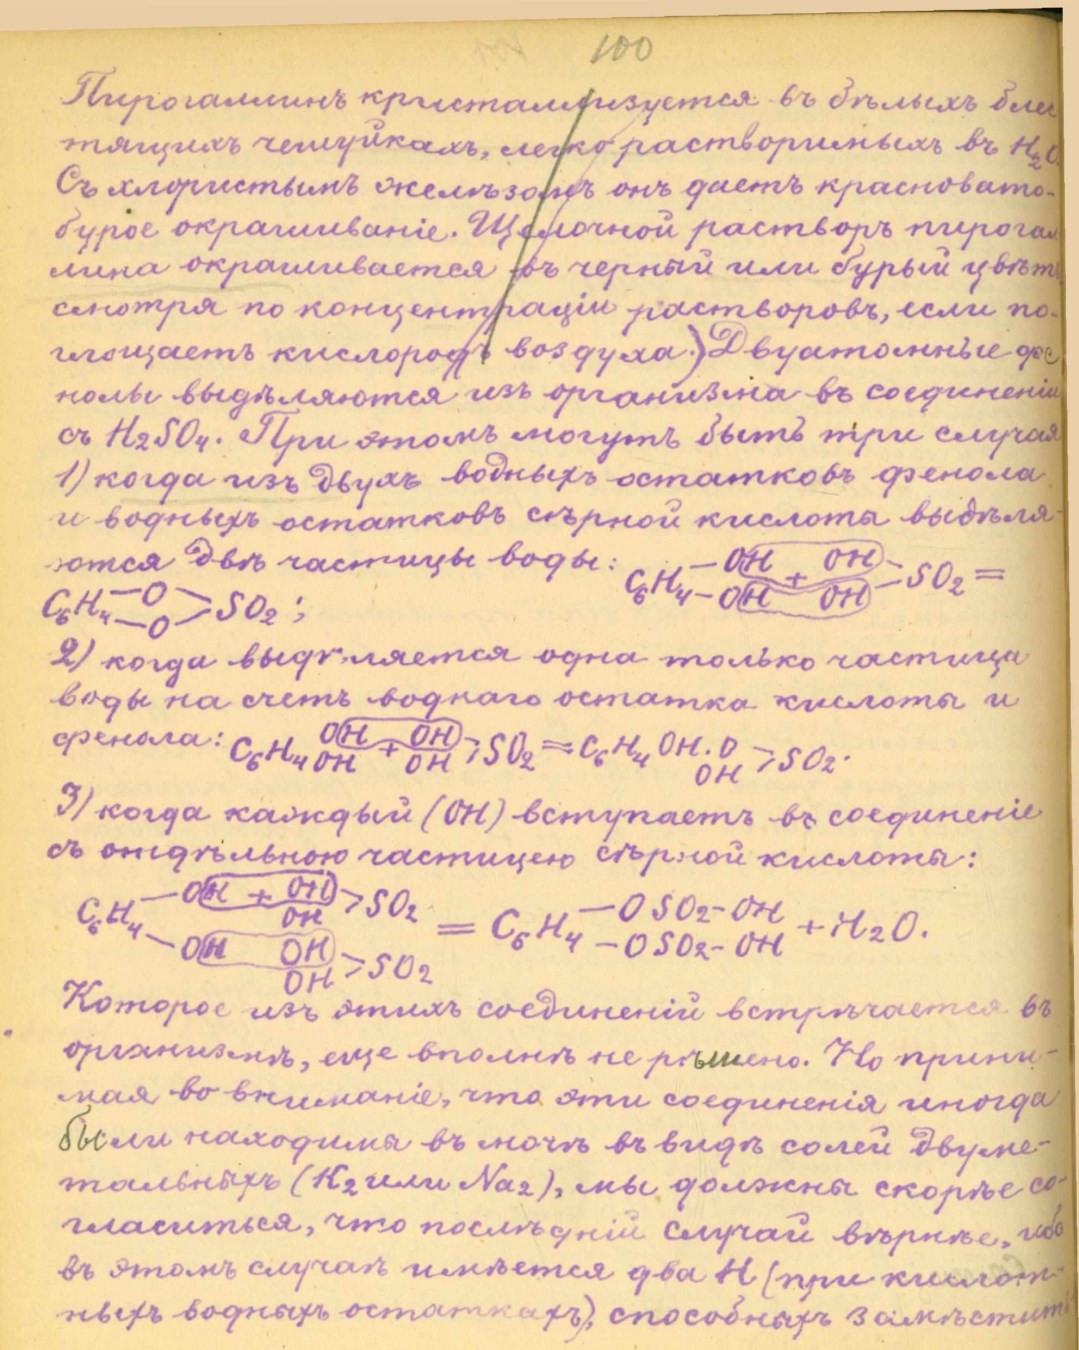 100
Пирогаллинъ кристаллизуется въ бѣлыхъ блес
тящихъ чешуйкахъ, легко растворимыхъ въ H2O.
Съ хлористымъ желѣзомъ онъ даетъ красновато-
бурое окрашиваніе. Щелочной растворъ пирогал
лина окрашивается въ черный или бурый цвѣтъ
смотря по концентраціи растворовъ, если по-
глощаетъ кислородъ воздуха.) Двуатомные фе
нолы выдѣляются изъ организма въ соединеніи
съ H2SO4. При этомъ могутъ быть три случая
1) когда изъ двухъ водныхъ остатковъ фенола
и водныхъ остатковъ сѣрной кислоты выдѣля-
ются двѣ частицы воды: C6H4 –OH –OH + OH OH –SO2 =
C6H4 –O –O >SO2;
2) когда выдѣляется одна только частица
воды на счетъ воднаго остатка кислоты и
фенола: C6H4 OH OH + OH OH >SO2 = C6H4 OH.O OH >SO2.
3) когда каждый (OH) вступаетъ въ соединеніе
съ отдѣльною частицею сѣрной кислоты:
C6H4 –OH + OH OH >SO2 –OH OH OH >SO2 = C6H4 –OSO2–OH –OSO2–OH + H2O.
Которое изъ этихъ соединеній встрѣчается въ
организмѣ, еще вполнѣ не рѣшено. Но прини-
мая во вниманіе, что эти соединенія иногда
были находимы въ мочѣ въ видѣ солей двуме-
тальныхъ (K2 или Na2), мы должны скорѣе со-
гласиться, что послѣдній случай вѣрнѣе, ибо
въ этомъ случаѣ имѣется два H (при кислот-
ныхъ водныхъ остаткахъ), способныхъ замѣстить